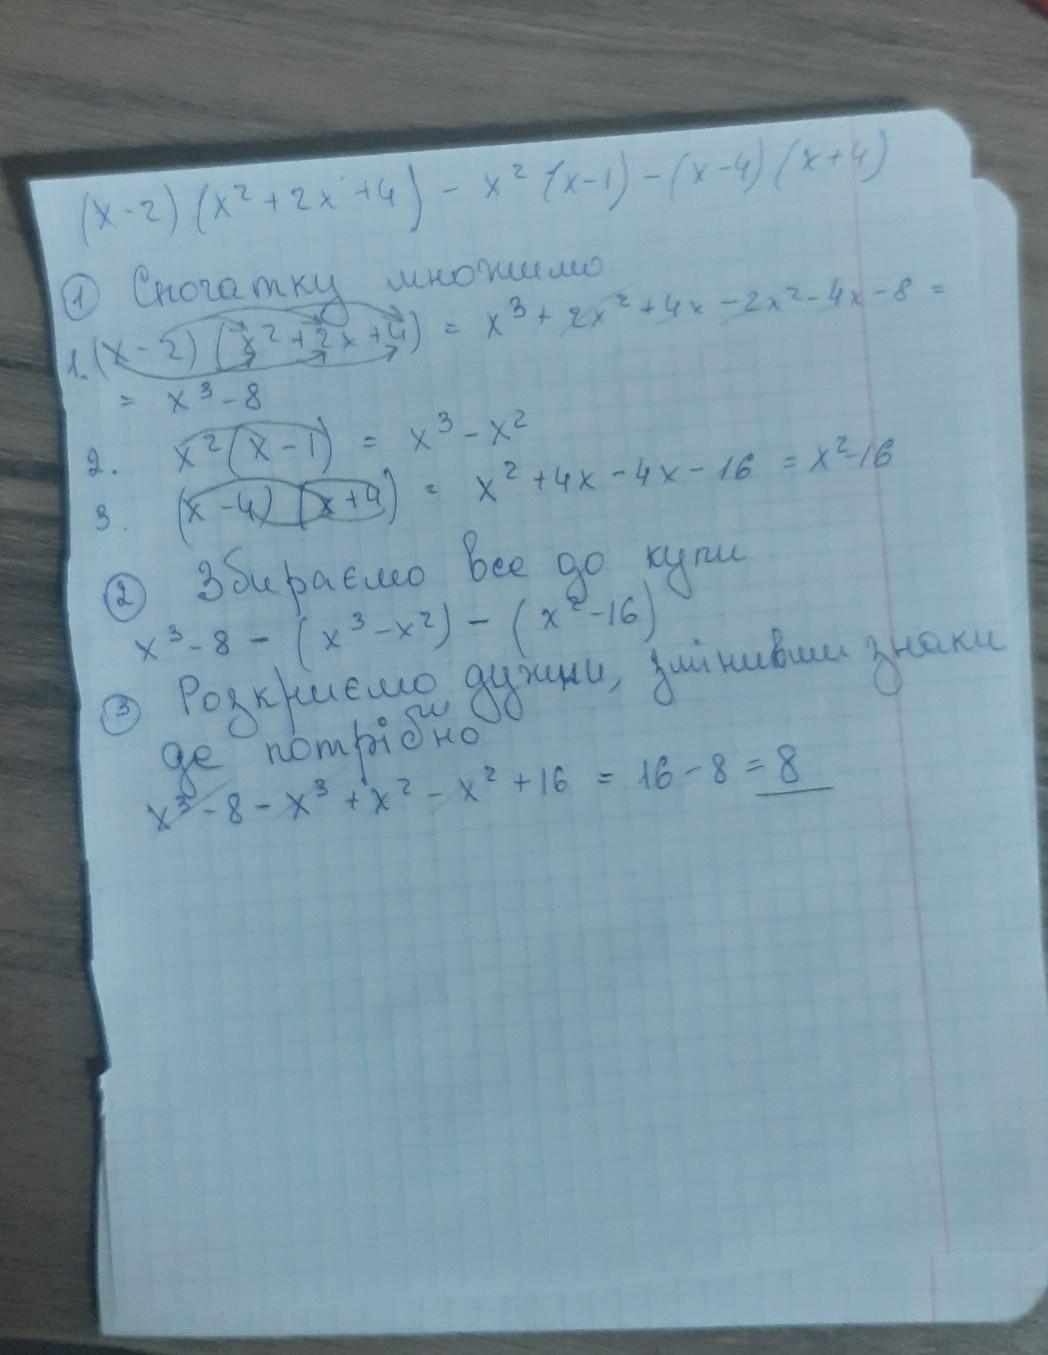 (x-2)(x²+2x+4) - x²(x-1) - (x-4)(x+4)
① Спочатку множимо
1. (x-2)(x²+2x+4) = x³+2x²+4x-2x²-4x-8 =
= x³-8
2. x²(x-1) = x³-x²
3. (x-4)(x+4) = x²+4x-4x-16 = x²-16
② Збираємо все до купи
x³-8-(x³-x²)-(x²-16)
③ Розкриємо дужки, змінивши знаки
де потрібно
x³-8-x³+x²-x²+16 = 16-8=8